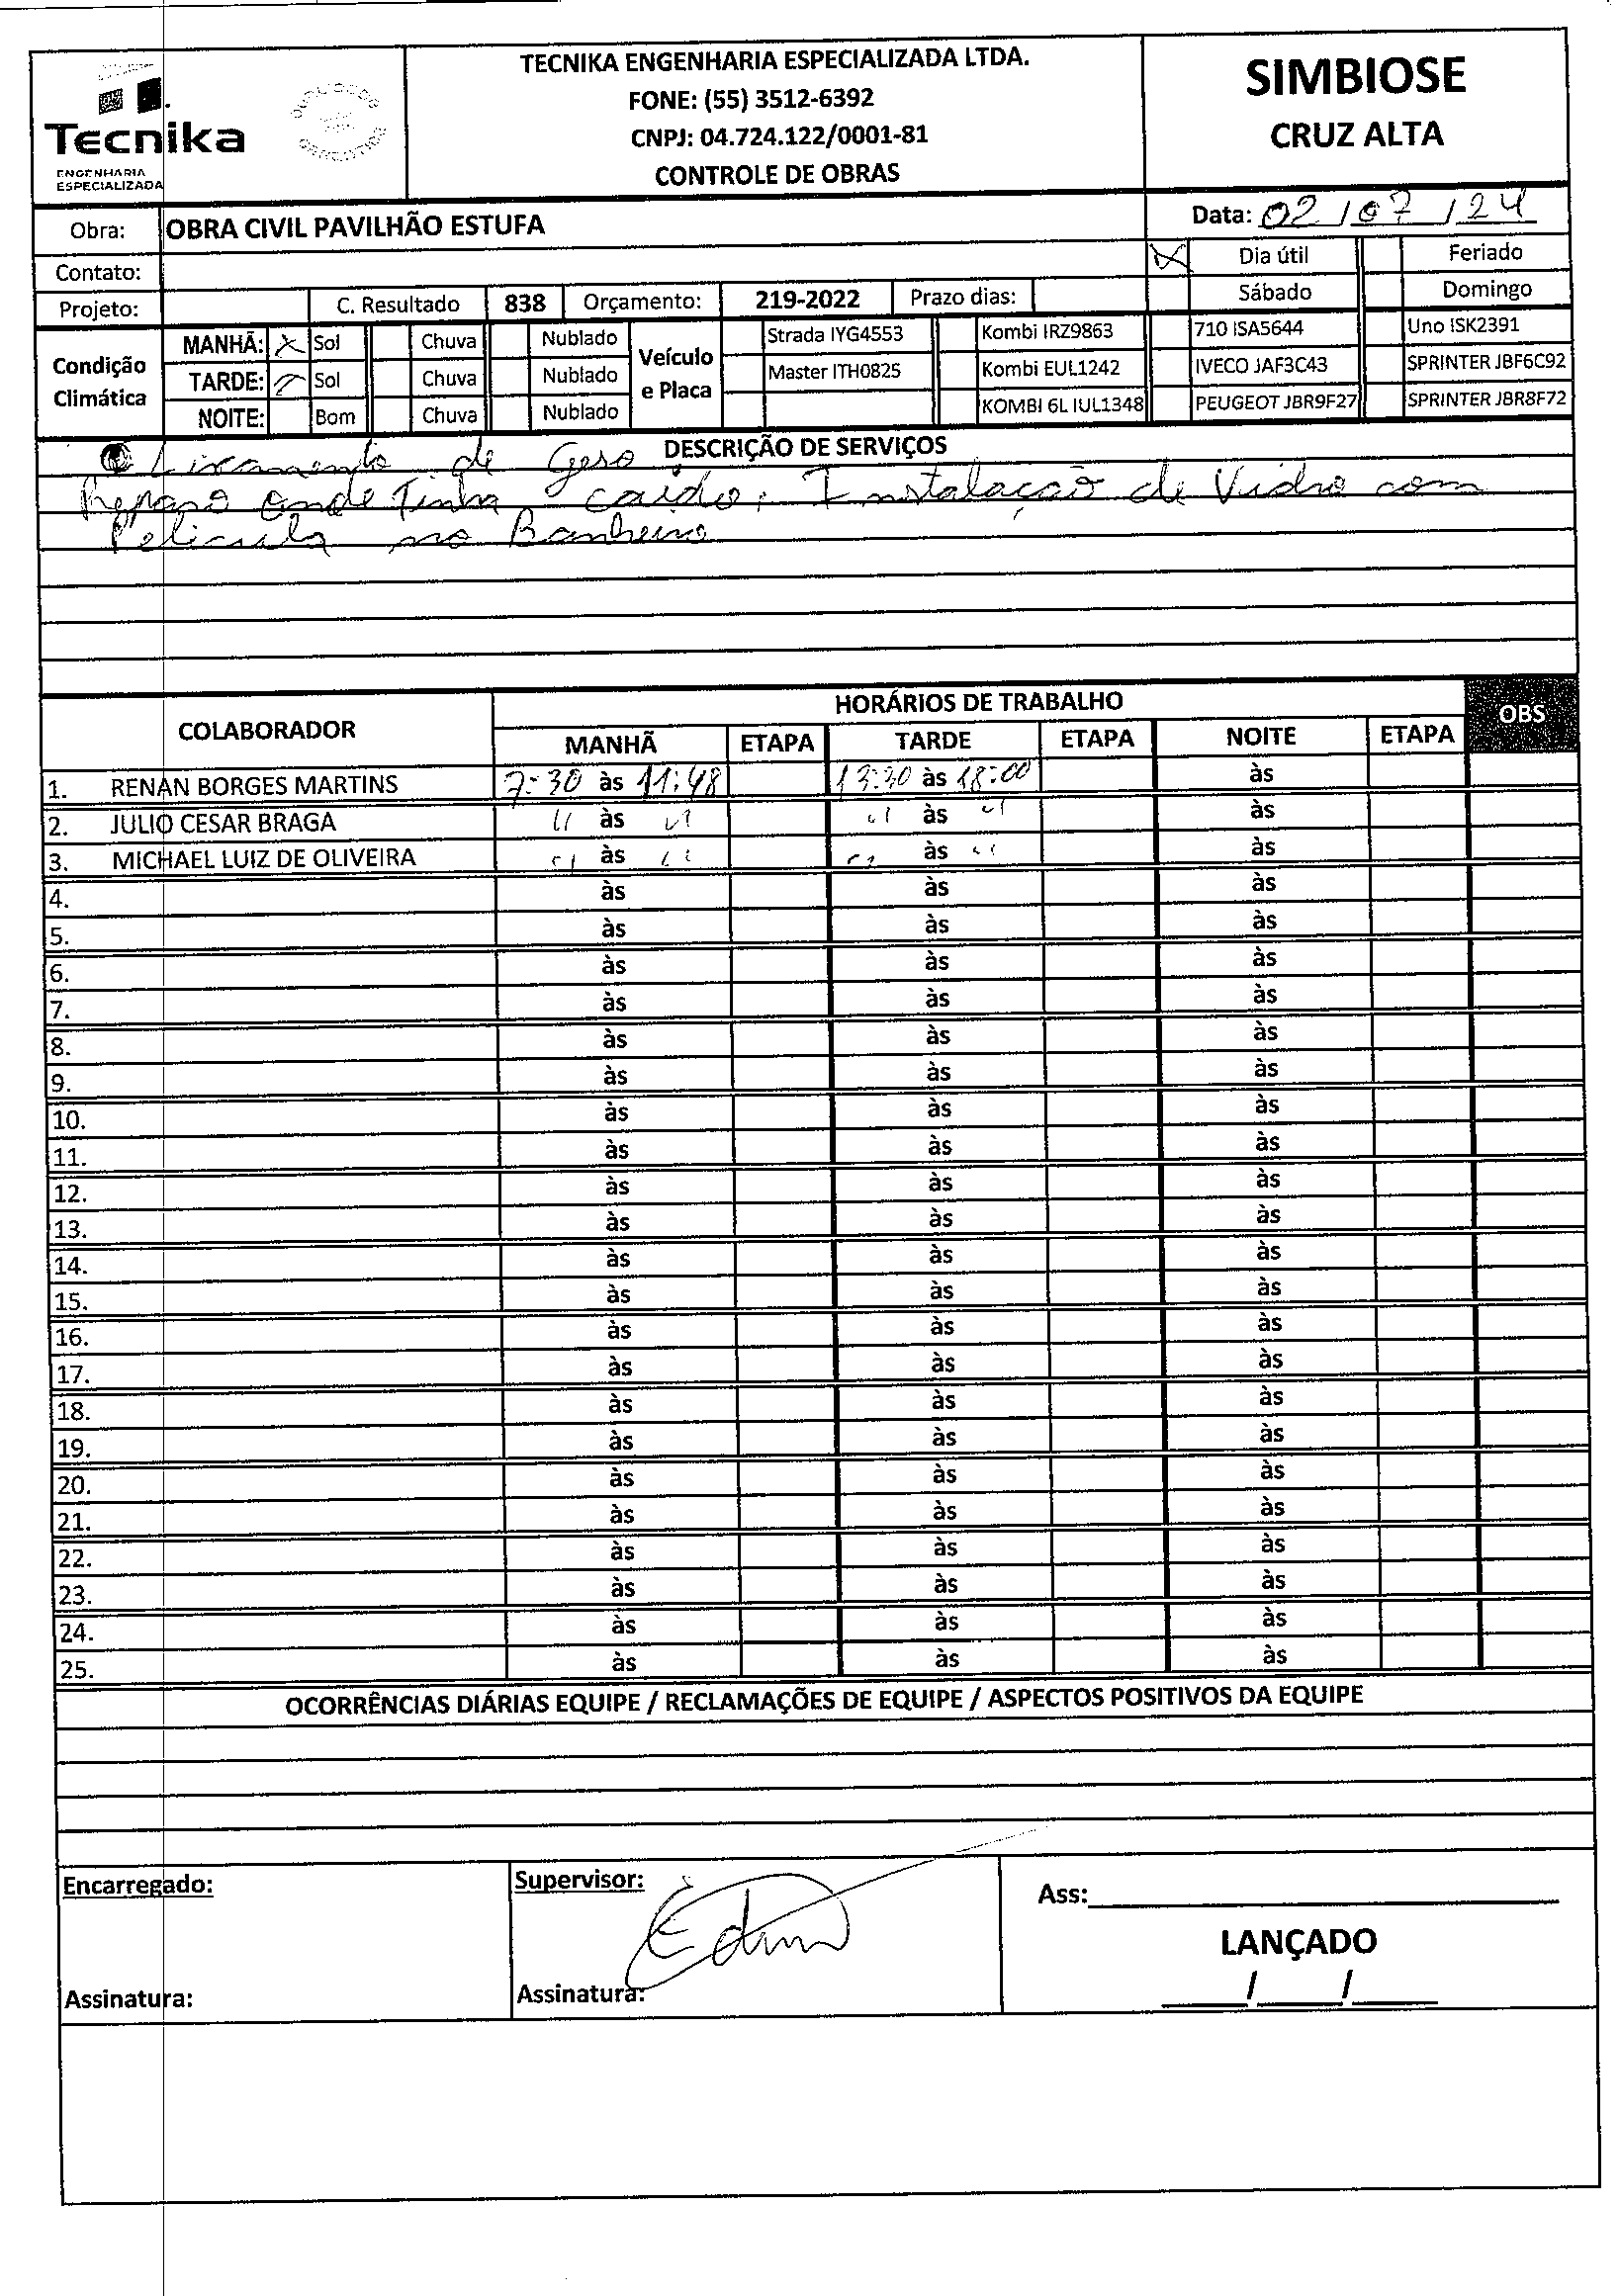 Tecnika
ENGENHARIA
ESPECIALIZADA
TECNIKA ENGENHARIA ESPECIALIZADA LTDA.
FONE: (55) 3512-6392
CNPJ: 04.724.122/0001-81
CONTROLE DE OBRAS
SIMBIOSE
CRUZ ALTA
Obra: OBRA CIVIL PAVILHÃO ESTUFA
Data: 02/07/24
Contato:
Dia útil Feriado
Projeto: C. Resultado 838 Orçamento: 219-2022 Prazo dias:
Sábado Domingo
Condição Climática
MANHÃ: X Sol Chuva Nublado
TARDE: Sol Chuva Nublado
NOITE: Bom Chuva Nublado
Veículo e Placa
Strada IYG4553 Kombi IRZ9863 710 ISA5644 Uno ISK2391
Master ITH0825 Kombi EUL1242 IVECO JAF3C43 SPRINTER JBF6C92
KOMBI 6L IUL1348 PEUGEOT JBR9F27 SPRINTER JBR8F72
DESCRIÇÃO DE SERVIÇOS
Lixamento de Geso
Reparo onde Tinha caído, Instalação de Vidro com
Pelicula no Banheiro
COLABORADOR HORÁRIOS DE TRABALHO OBS
MANHÃ ETAPA TARDE ETAPA NOITE ETAPA
1. RENAN BORGES MARTINS 7:30 às 11:48 13:30 às 18:00 às
2. JULIO CESAR BRAGA 11 às 11 11 às 11 às
3. MICHAEL LUIZ DE OLIVEIRA 11 às 11 11 às 11 às
4. às às às
5. às às às
6. às às às
7. às às às
8. às às às
9. às às às
10. às às às
11. às às às
12. às às às
13. às às às
14. às às às
15. às às às
16. às às às
17. às às às
18. às às às
19. às às às
20. às às às
21. às às às
22. às às às
23. às às às
24. às às às
25. às às às
OCORRÊNCIAS DIÁRIAS EQUIPE / RECLAMAÇÕES DE EQUIPE / ASPECTOS POSITIVOS DA EQUIPE
Encarregado:
Assinatura:
Supervisor:
Assinatura:
Ass:
LANÇADO
/ /